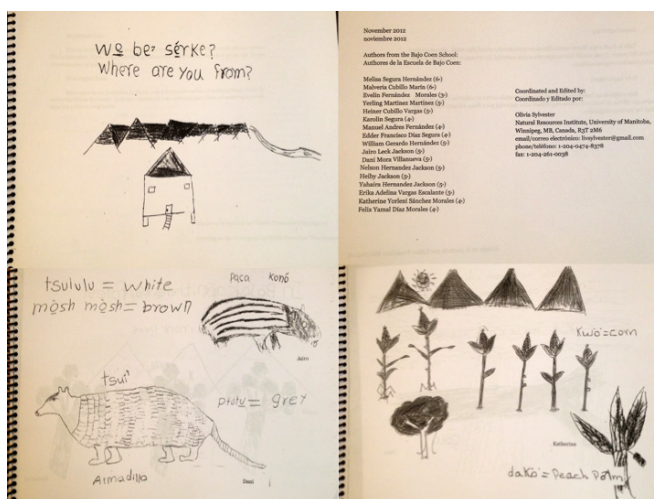 wo̱ be' sérke?
Where are you from?
November 2012
noviembre 2012
Authors from the Bajo Coen School:
Authores de la Escuela de Bajo Coen:
Melisa Segura Hernández (6-)
Malveria Cubillo Marín (6-)
Evelin Fernández Morales (3-)
Yerling Martinez Martinez (5-)
Heiner Cubillo Vargas (5-)
Karolin Segura (4-)
Manuel Andres Fernández (4-)
Edder Francisco Diaz Segura (4-)
William Gerardo Hernández (5-)
Jairo Leek Jackson (5-)
Dani Mora Villanueva (5-)
Nelson Hernandez Jackson (5-)
Heiby Jackson (5-)
Yahaira Hernandez Jackson (5-)
Erika Adelina Vargas Escalante (5-)
Katherine Yorleni Sánchez Morales (4-)
Felix Yamal Díaz Morales (4-)
Coordinated and Edited by:
Coordinado y Editado por:
Olivia Sylvester
Natural Resources Institute, University of Manitoba,
Winnipeg, MB, Canada, R3T 2M6
email/correo electrónico: livsylvester@gmail.com
phone/teléfono: 1-204-0474-8378
fax: 1-204-261-0038
tsululu = white
mo̱sh mo̱sh = brown
Paca Konó
Jairo
tsui'
= grey
Armadillo
Dani
Kwo' = corn
Katherine
dakó' = Peach Palm